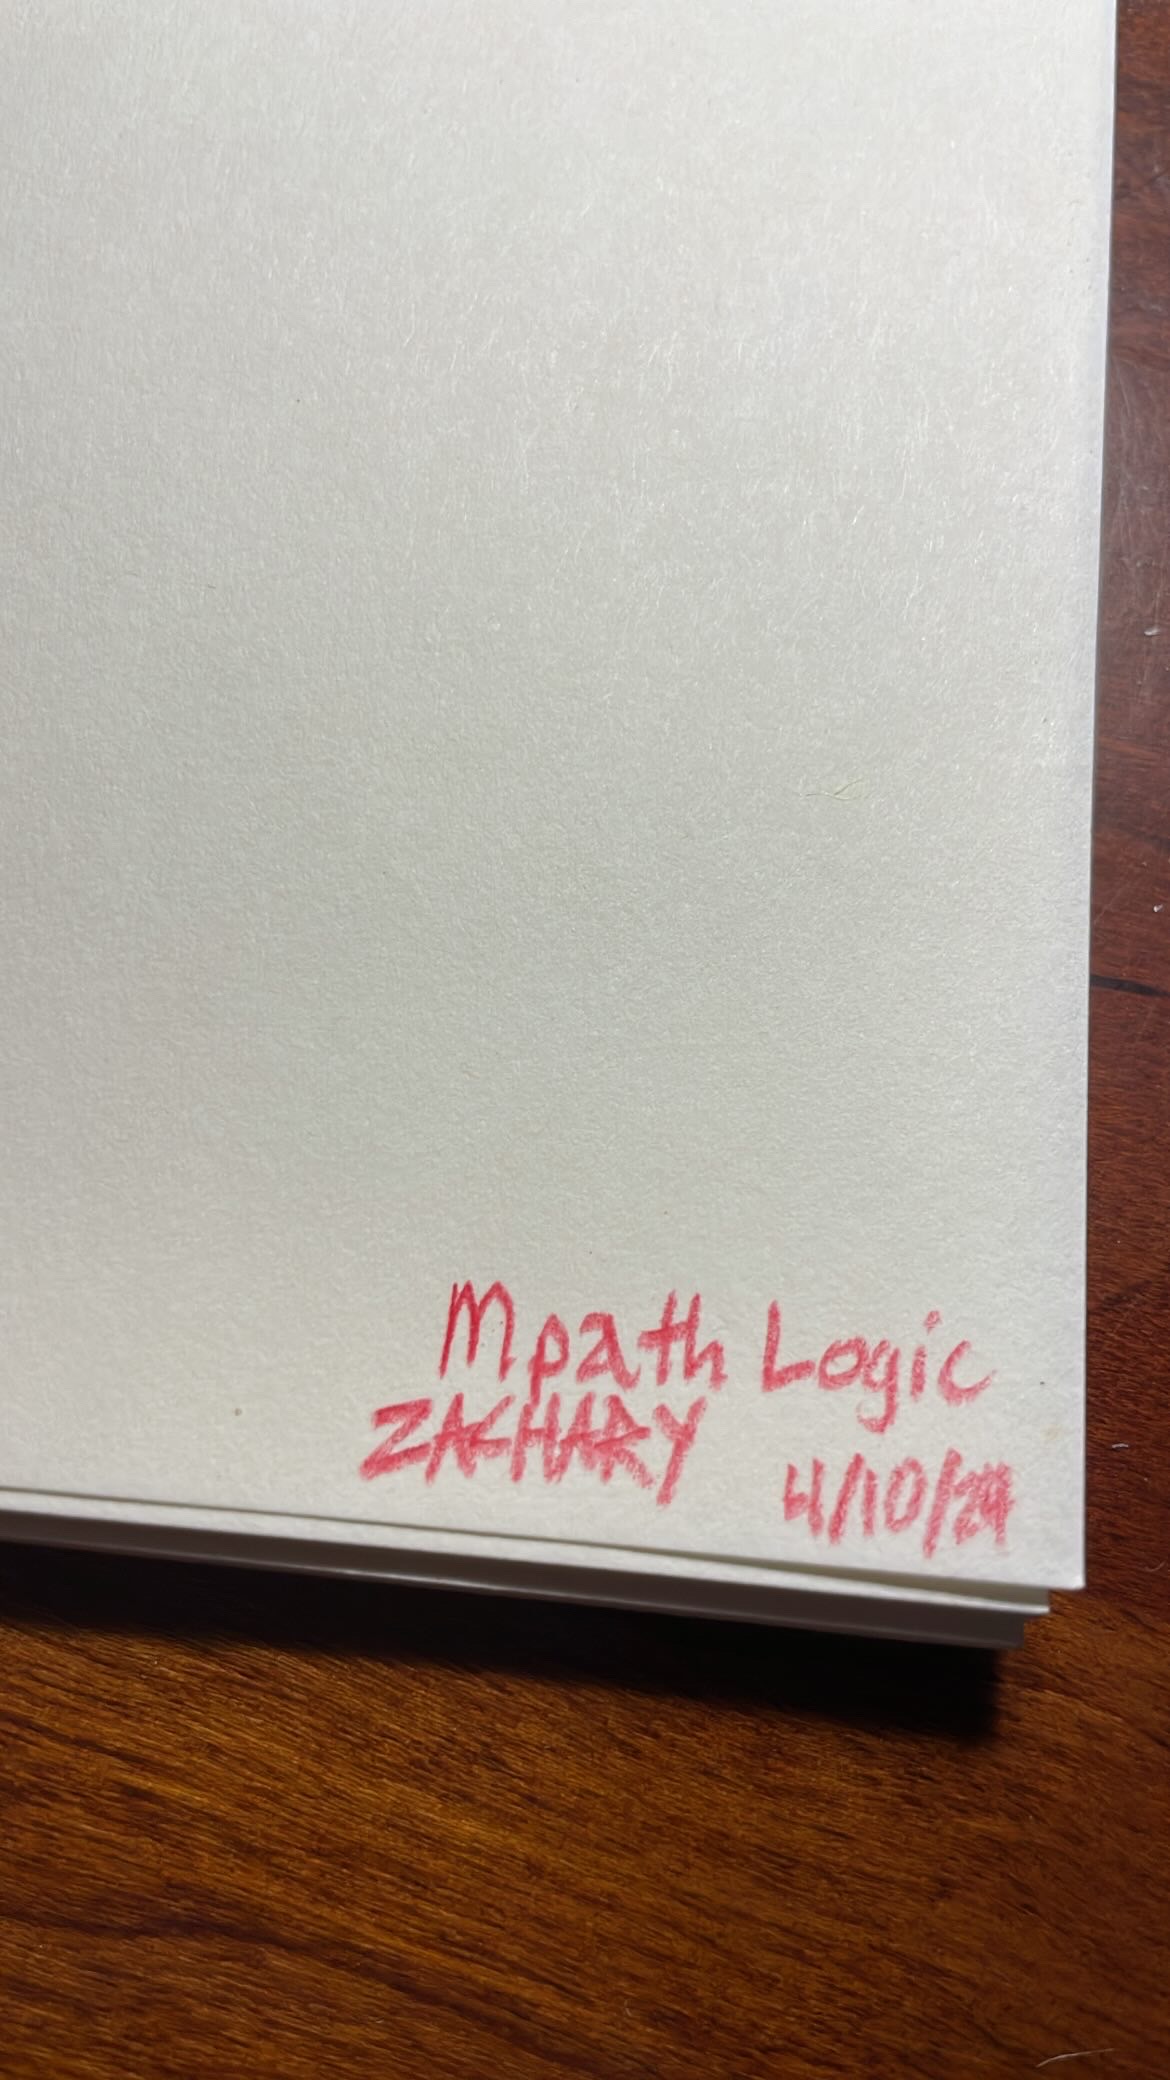 Mpath Logic
ZACHARY
4/10/24